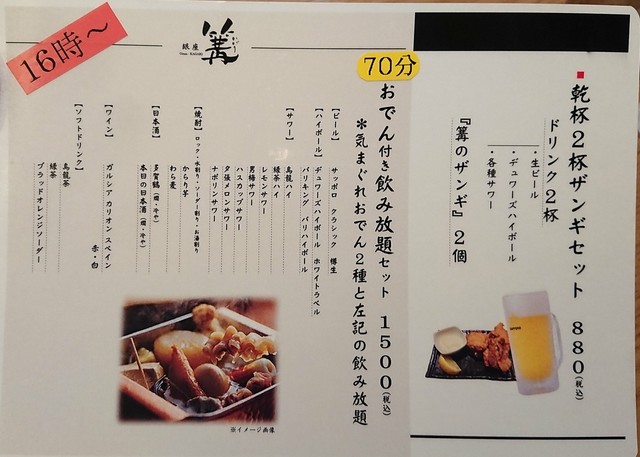 ■乾杯2杯ザンギセット 880(税込)
ドリンク2杯
・生ビール
・デュワーズハイボール
・各種サワー
『篝のザンギ』2個
70分
おでん付き飲み放題セット 1500(税込)
※気まぐれおでん2種と左記の飲み放題
【ビール】 サッポロ クラシック 樽生
【ハイボール】 デュワーズハイボール ホワイトラベル
バリキング バリハイボール
【サワー】 烏龍ハイ
緑茶ハイ
レモンサワー
男梅サワー
ハスカップサワー
夕張メロンサワー
ナポリンサワー
【焼酎】 ロック・水割り・ソーダー割り・お湯割り
からり芋
わら麦
【日本酒】 多賀鶴(燗・冷や)
本日の日本酒(燗・冷や)
【ワイン】 ガルシア カリオン スペイン
赤・白
【ソフトドリンク】 烏龍茶
緑茶
ブラッドオレンジソーダー
銀座
篝
16時～
※イメージ画像